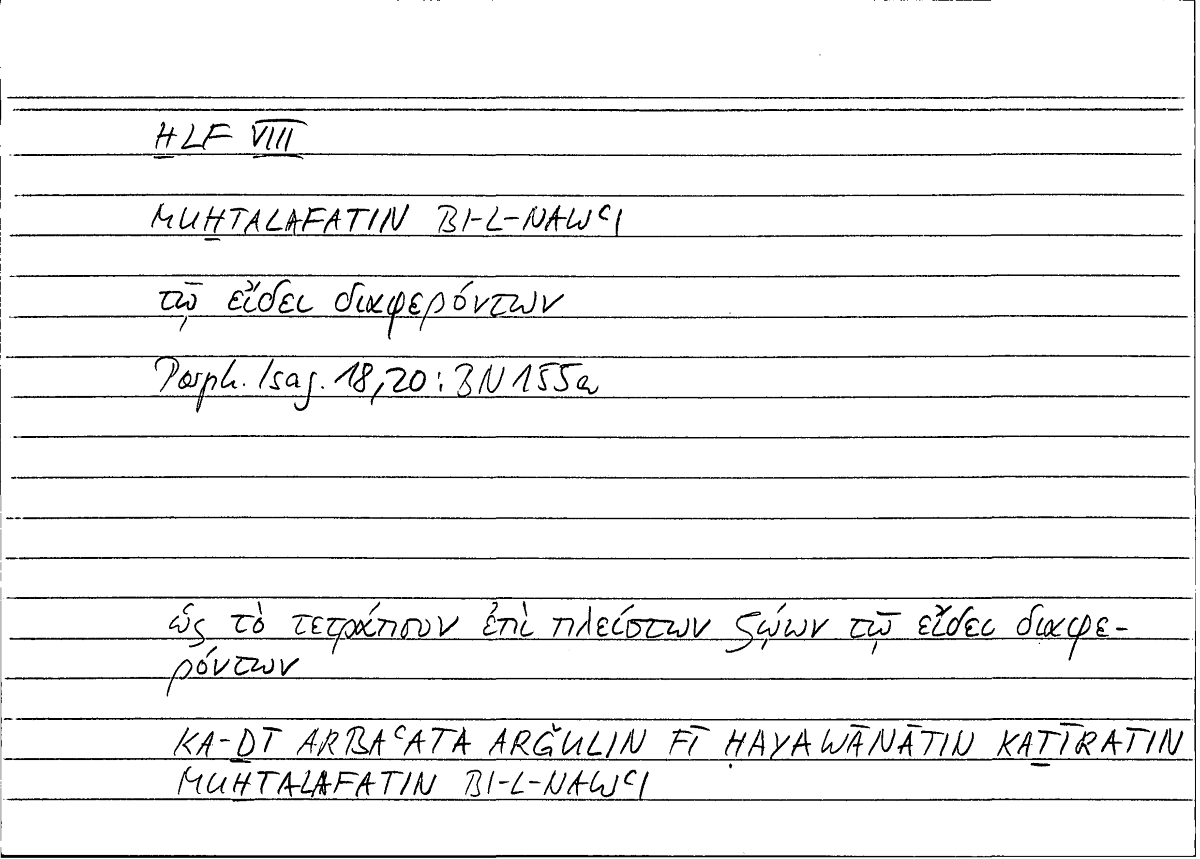 ḪLF VIII
MUḪTALAFATIN BI-L-NAWʿI
τῷ εἴδει διαφερόντων
Porph. Isag. 18,20: BN 155a
ὡς τὸ τετράπουν ἐπὶ πλείστων ζῴων τῷ εἴδει διαφε-
ρόντων
KA-ḎĪ ARBAʿATA ARǦULIN FĪ ḤAYAWĀNĀTIN KAṮĪRATIN
MUḪTALAFATIN BI-L-NAWʿI